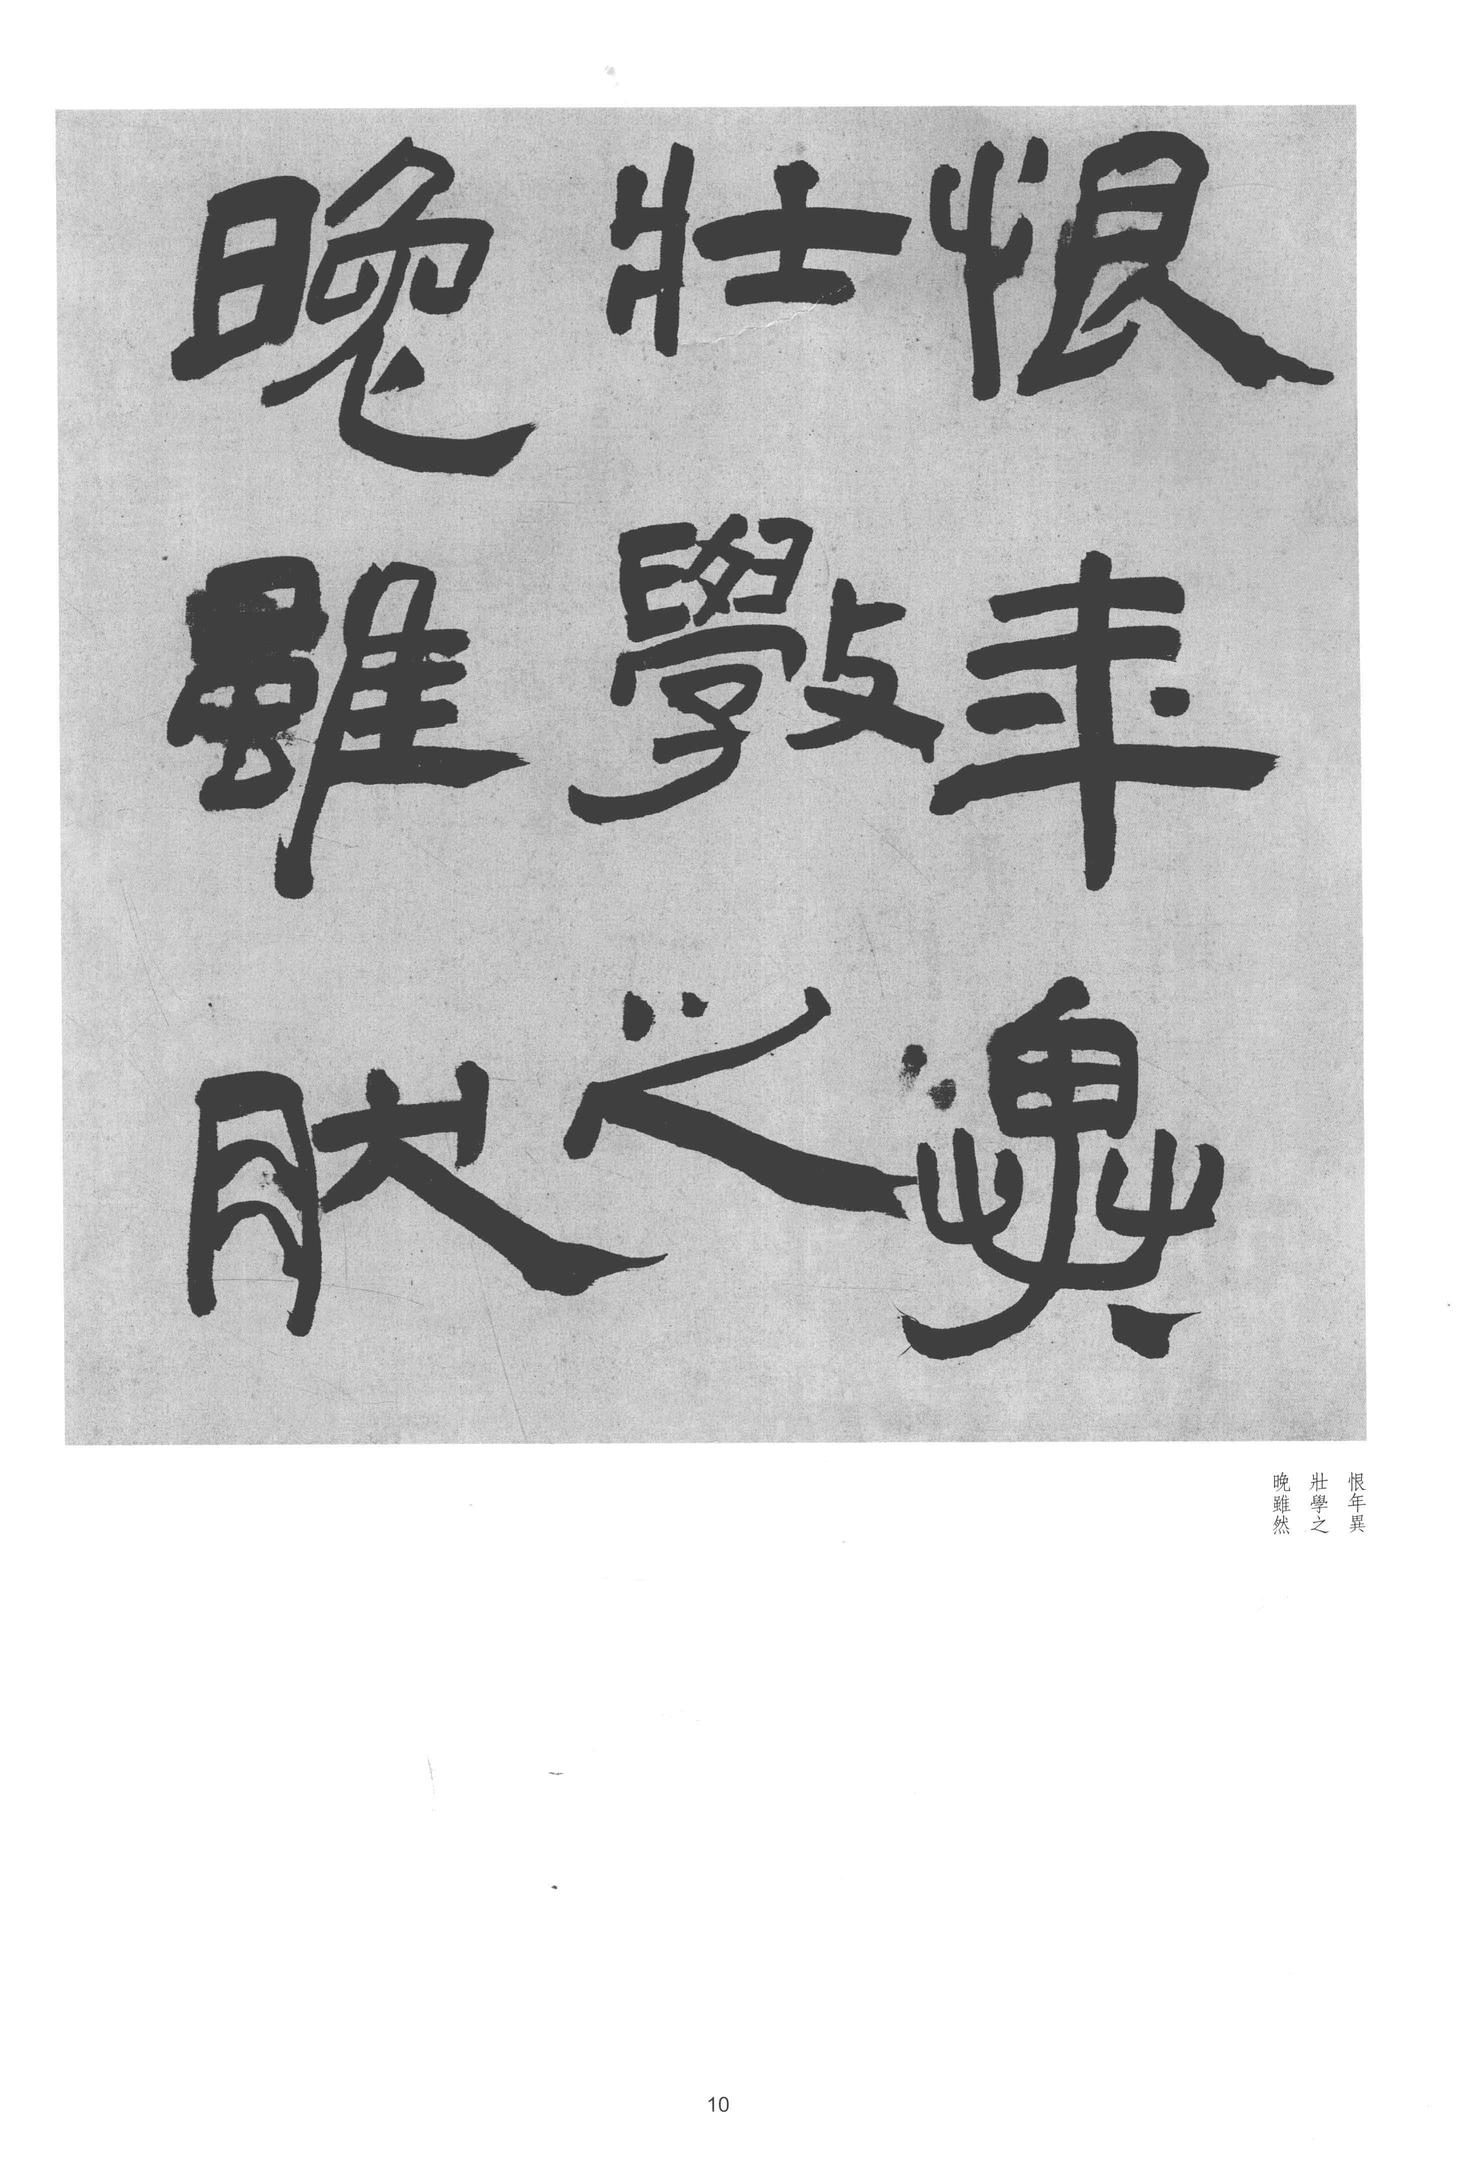 恨年異
壯斆之
晚雖肰
恨年異
壯學之
晚雖然
10